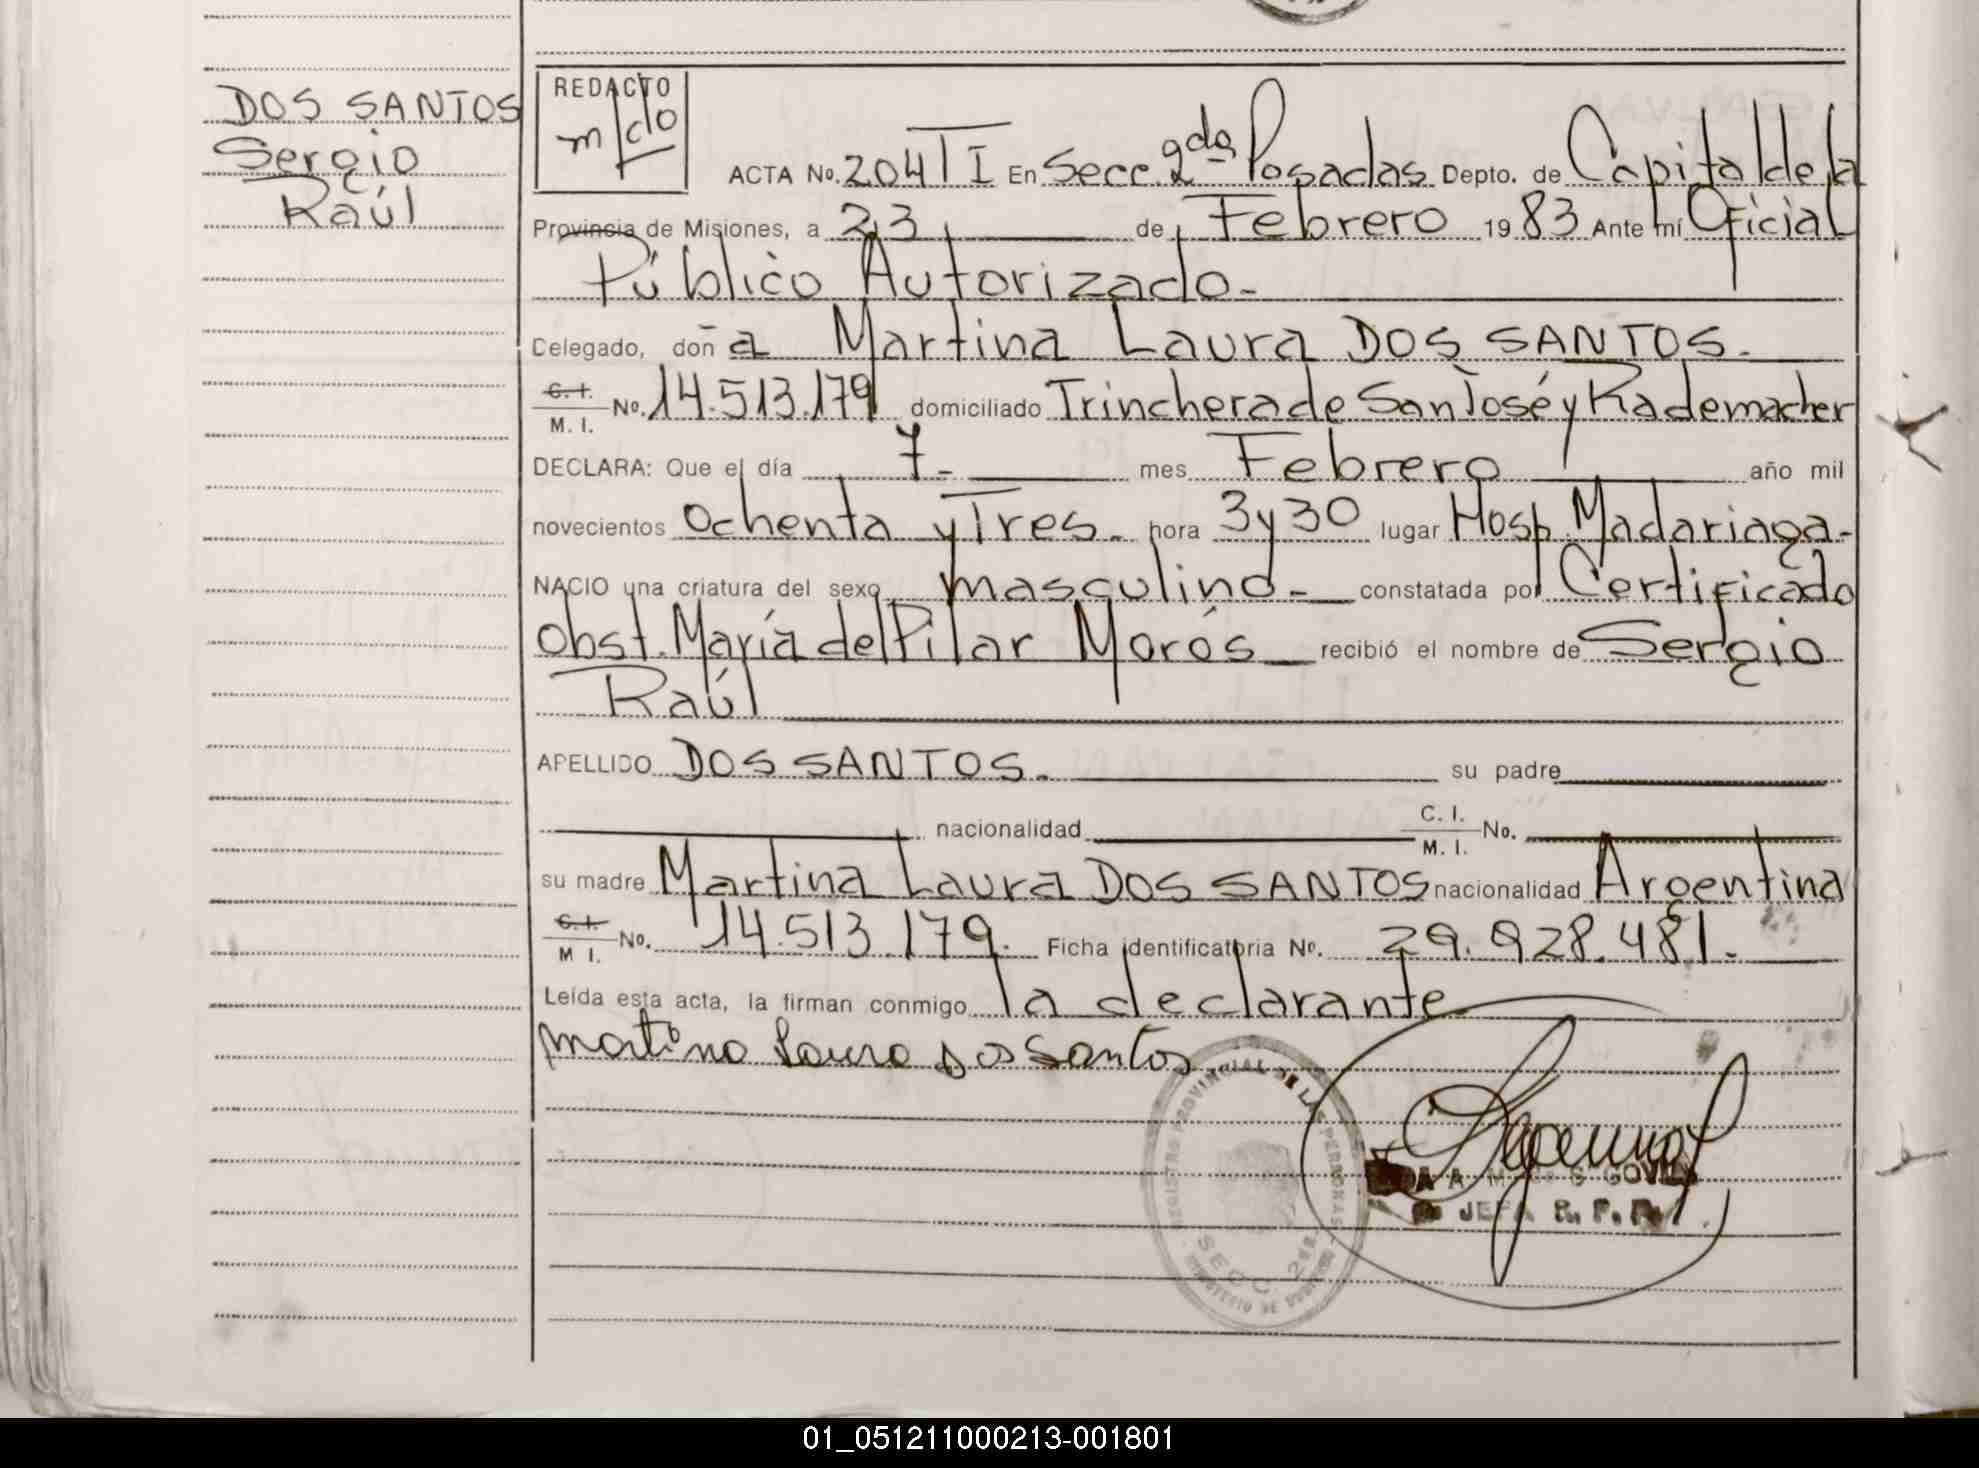 DOS SANTOS
Sergio
Raúl
REDACTO
m/do
ACTA No. 204 TI En Secc. 2da Posadas Depto. de Capital de la
Provincia de Misiones, a 23 de Febrero 1983 Ante mí Oficial
Público Autorizado-
Delegado, doña Martina Laura DOS SANTOS.
C. I. / M. I. No. 14.513.179 domiciliado Trinchera de San José y Rademacher
DECLARA: Que el día 7- mes Febrero año mil
novecientos ochenta y Tres. hora 3 y 30 lugar Hosp. Madariaga-
NACIO una criatura del sexo masculino- constatada por Certificado
Obst. María del Pilar Morós recibió el nombre de Sergio
Raúl
APELLIDO DOS SANTOS. su padre
nacionalidad C. I. / M. I. No.
su madre Martina Laura DOS SANTOS nacionalidad Argentina
C. I. / M. I. No. 14.513.179. Ficha identificatoria No. 29.928.481.-
Leída esta acta, la firman conmigo la declarante
Martina Laura dos Santos
REGISTRO PROVINCIAL DE LAS PERSONAS
SECC. 2da.
MINISTERIO DE GOBIERNO
JEFA R. P. P.
01_051211000213-001801